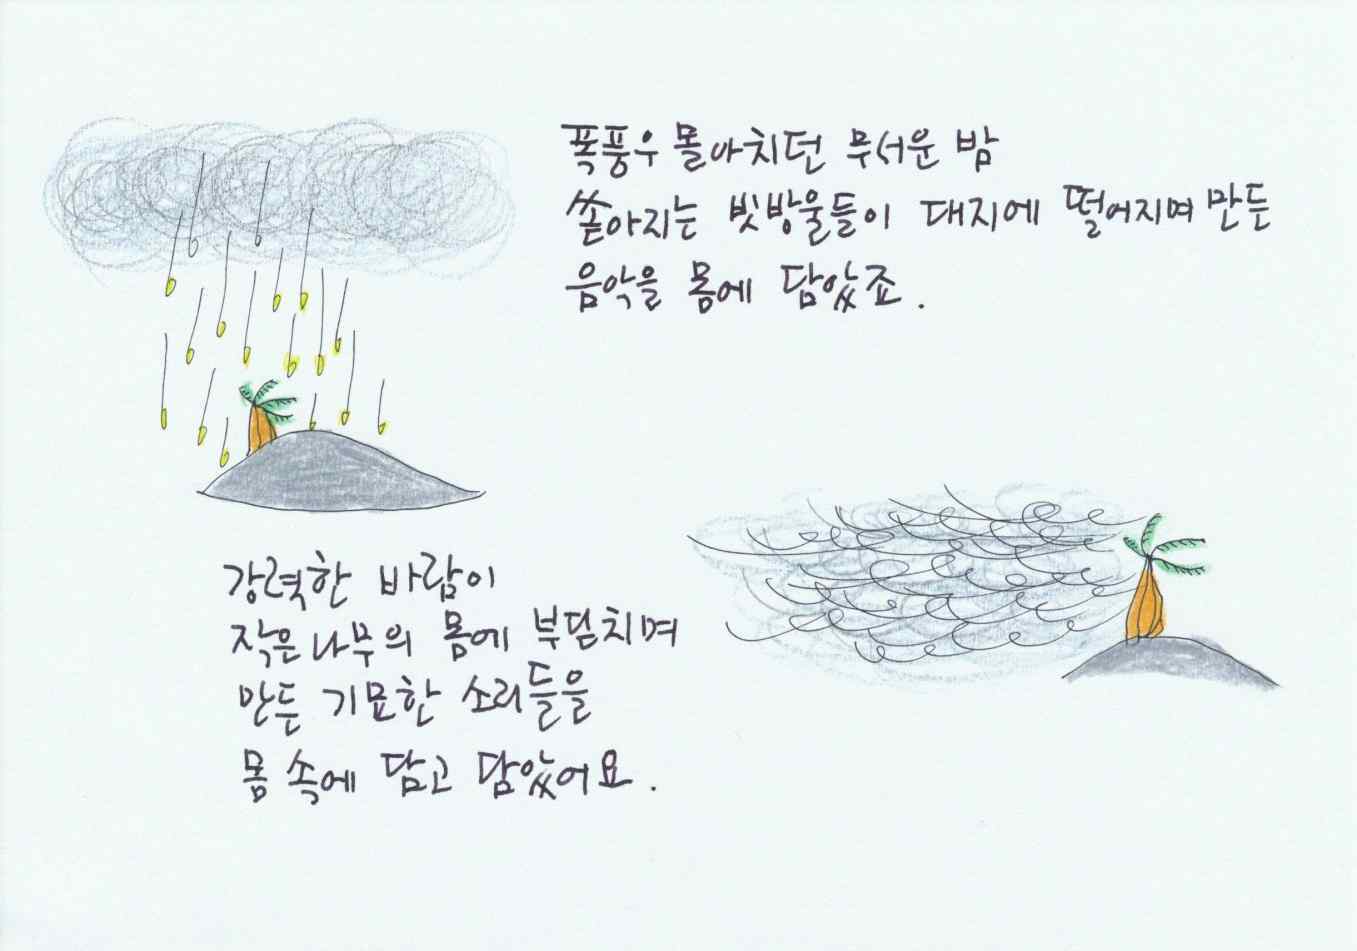 폭풍우 몰아치던 무서운 밤
쏟아지는 빗방울들이 대지에 떨어지며 만든
음악을 몸에 담았죠.
강력한 바람이
작은나무의 몸에 부딛치며
만든 기묘한 소리들을
몸 속에 담고 담았어요.